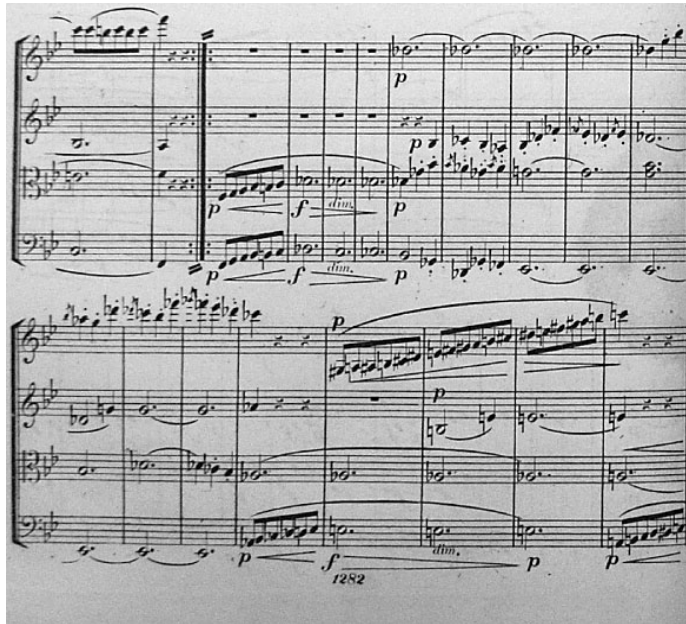 p
p
p f dim. p
p f dim. p
p
p
p f dim. p p
1282